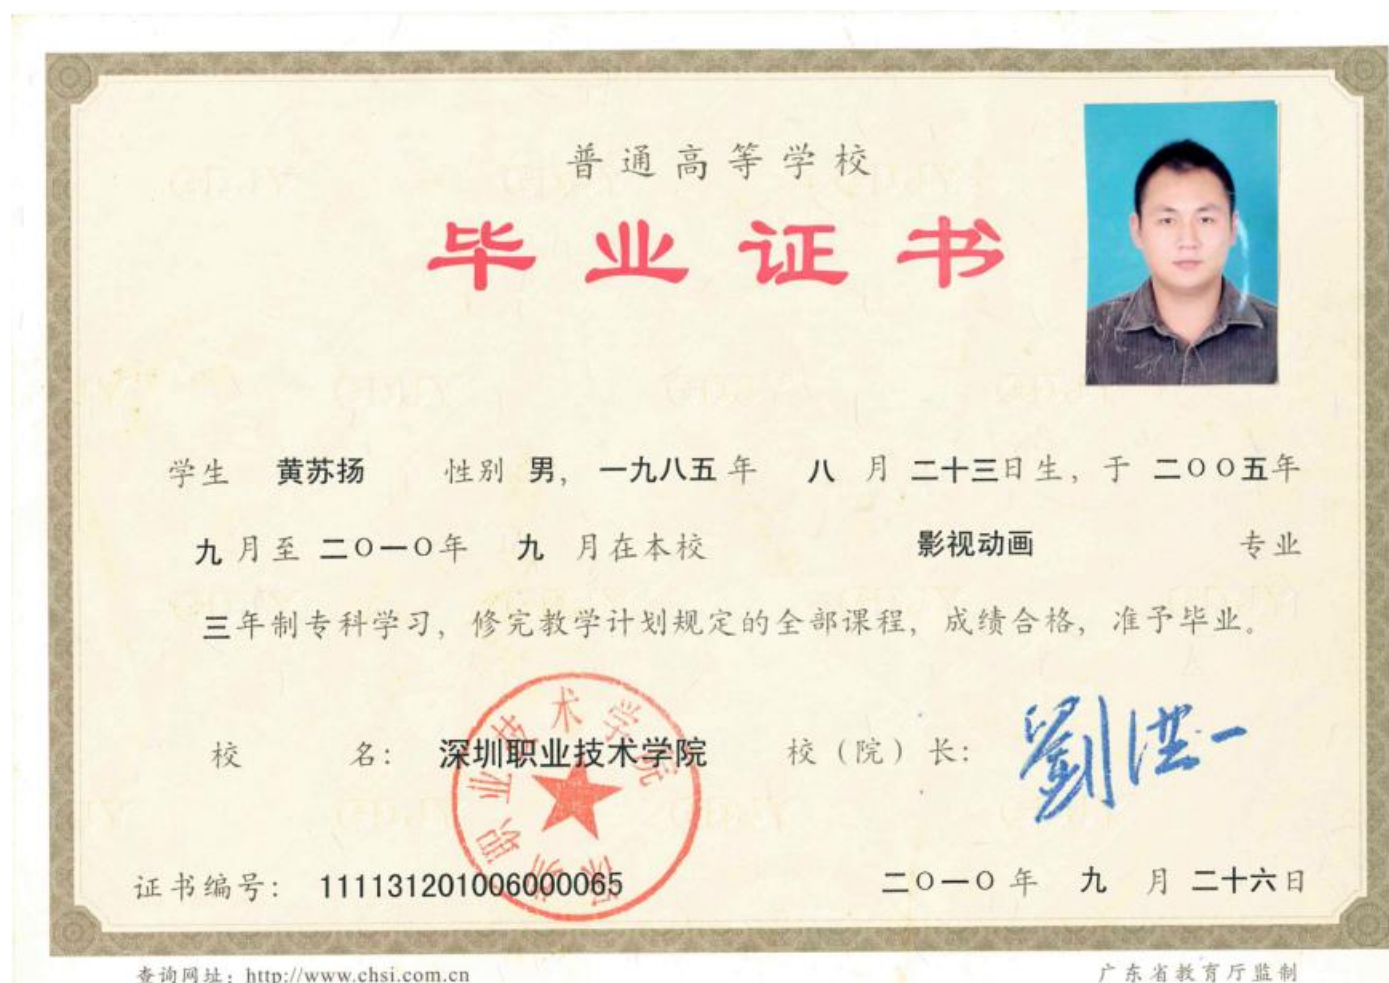 普通高等学校
毕业证书
学生 黄苏扬 性别 男，一九八五年 八 月 二十三日生，于 二〇〇五年
九月至 二〇一〇年 九 月在本校 影视动画 专业
三年制专科学习，修完教学计划规定的全部课程，成绩合格，准予毕业。
校 名：深圳职业技术学院 校（院）长：劉洪一
深圳职业技术学院
证书编号：111131201006000065 二〇一〇年 九 月 二十六日
查询网址：http://www.chsi.com.cn 广东省教育厅监制